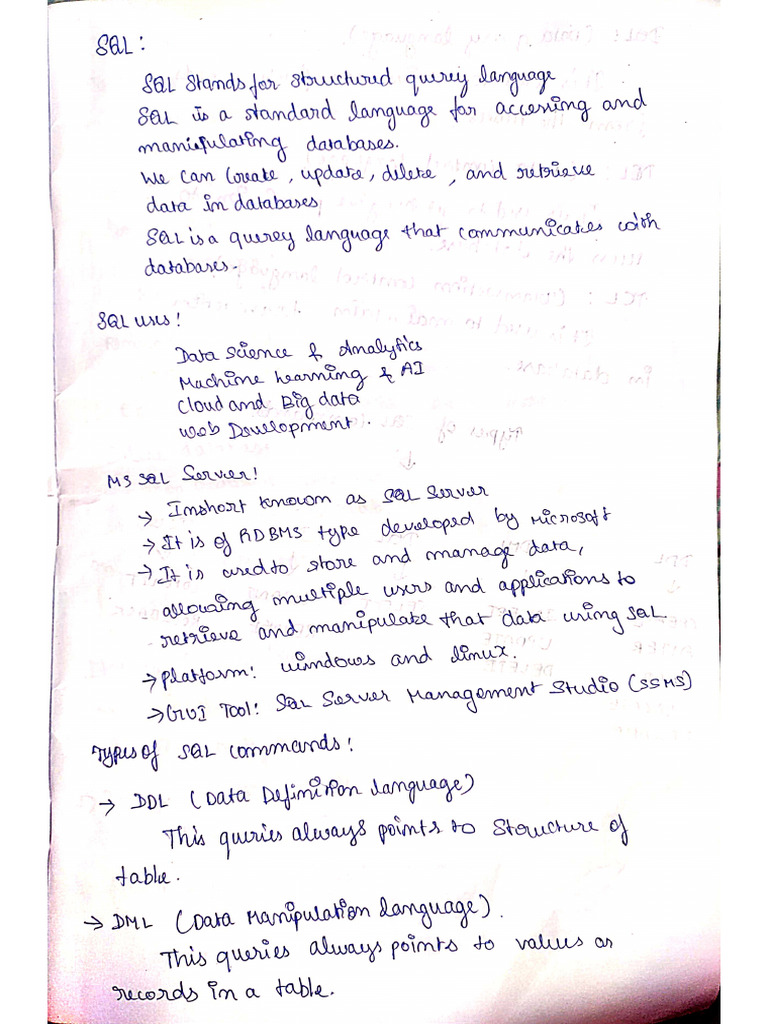 SQL:
SQL Stands for Structured querey language
SQL is a standard language for accessing and
manipulating databases.
We can Create, update, delete, and retrieve
data in databases
SQL is a querey language that communicates with
databases.
SQL uses!
Data Science & Analytics
Machine Learning & AI
Cloud and Big data
Web Development.
MS SQL Server!
→ Inshort known as SQL Server
→ It is of RDBMS type developed by Microsoft
→ It is used to store and manage data,
allowing multiple users and applications to
retrieve and manipulate that data using SQL
→ Platform: windows and linux.
→ GUI Tool: SQL Server Management Studio (SSMS)
Types of SQL Commands:
→ DDL (Data Definition Language)
This queries always points to Structure of
table.
→ DML (Data Manipulation Language).
This queries always points to values as
records in a table.